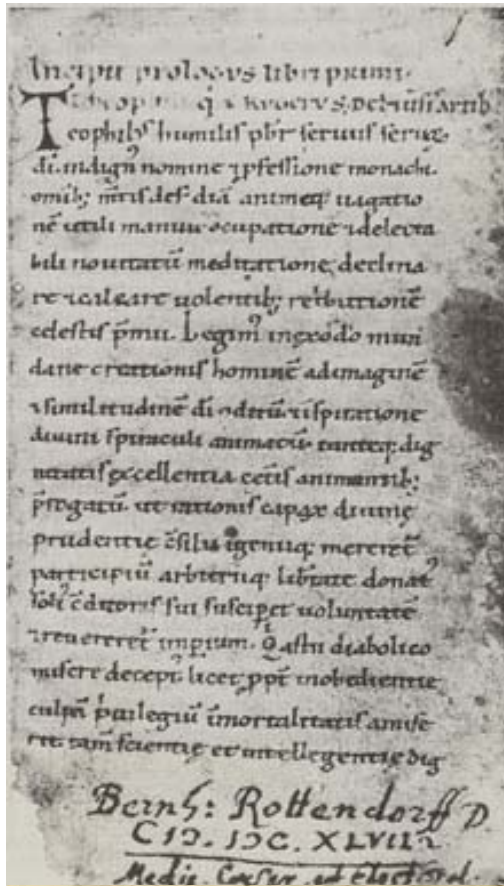 Incipit prologus libri primi.
Theophili q & Rugerus. De diuersis artib
Teophilus humilis pbr seruus seruoꝝ
di. indign⁹ nomine ⁊ pfessione monachi.
omib; mtis desidiā animeq; uagatio
nē utili manuū occupatione ⁊ delecta
bili nouitatū meditatione, declina
re ⁊ calcare uolentib; retbutionē
celestis pmii. Legim⁹ in exodo mun
dane creationis hominē ad imaginē
⁊ similitudinē di ꝯditū ⁊ ispiratione
diuini spiraculi animatū tanteq; dig
nitatis excellentia cetis animantib;
progatū. ut rationis capax diuinę
prudentię ꝯsilii igeniiq; mereret
participiū arbitriiq; libtate donat⁹
soli⁹ ꝯditoris sui suscipet uoluntatē
⁊ reuereret impium. Qi astu diabolico
misere decept⁹ licet ppt inobedientię
culpā priuilegiū imortalitatis amise
rit. tam scientię et intellegentię dig
Bernh: Rottendorff D
CIƆ. IƆC. XLVII
Medic. Caesar. ad Elect